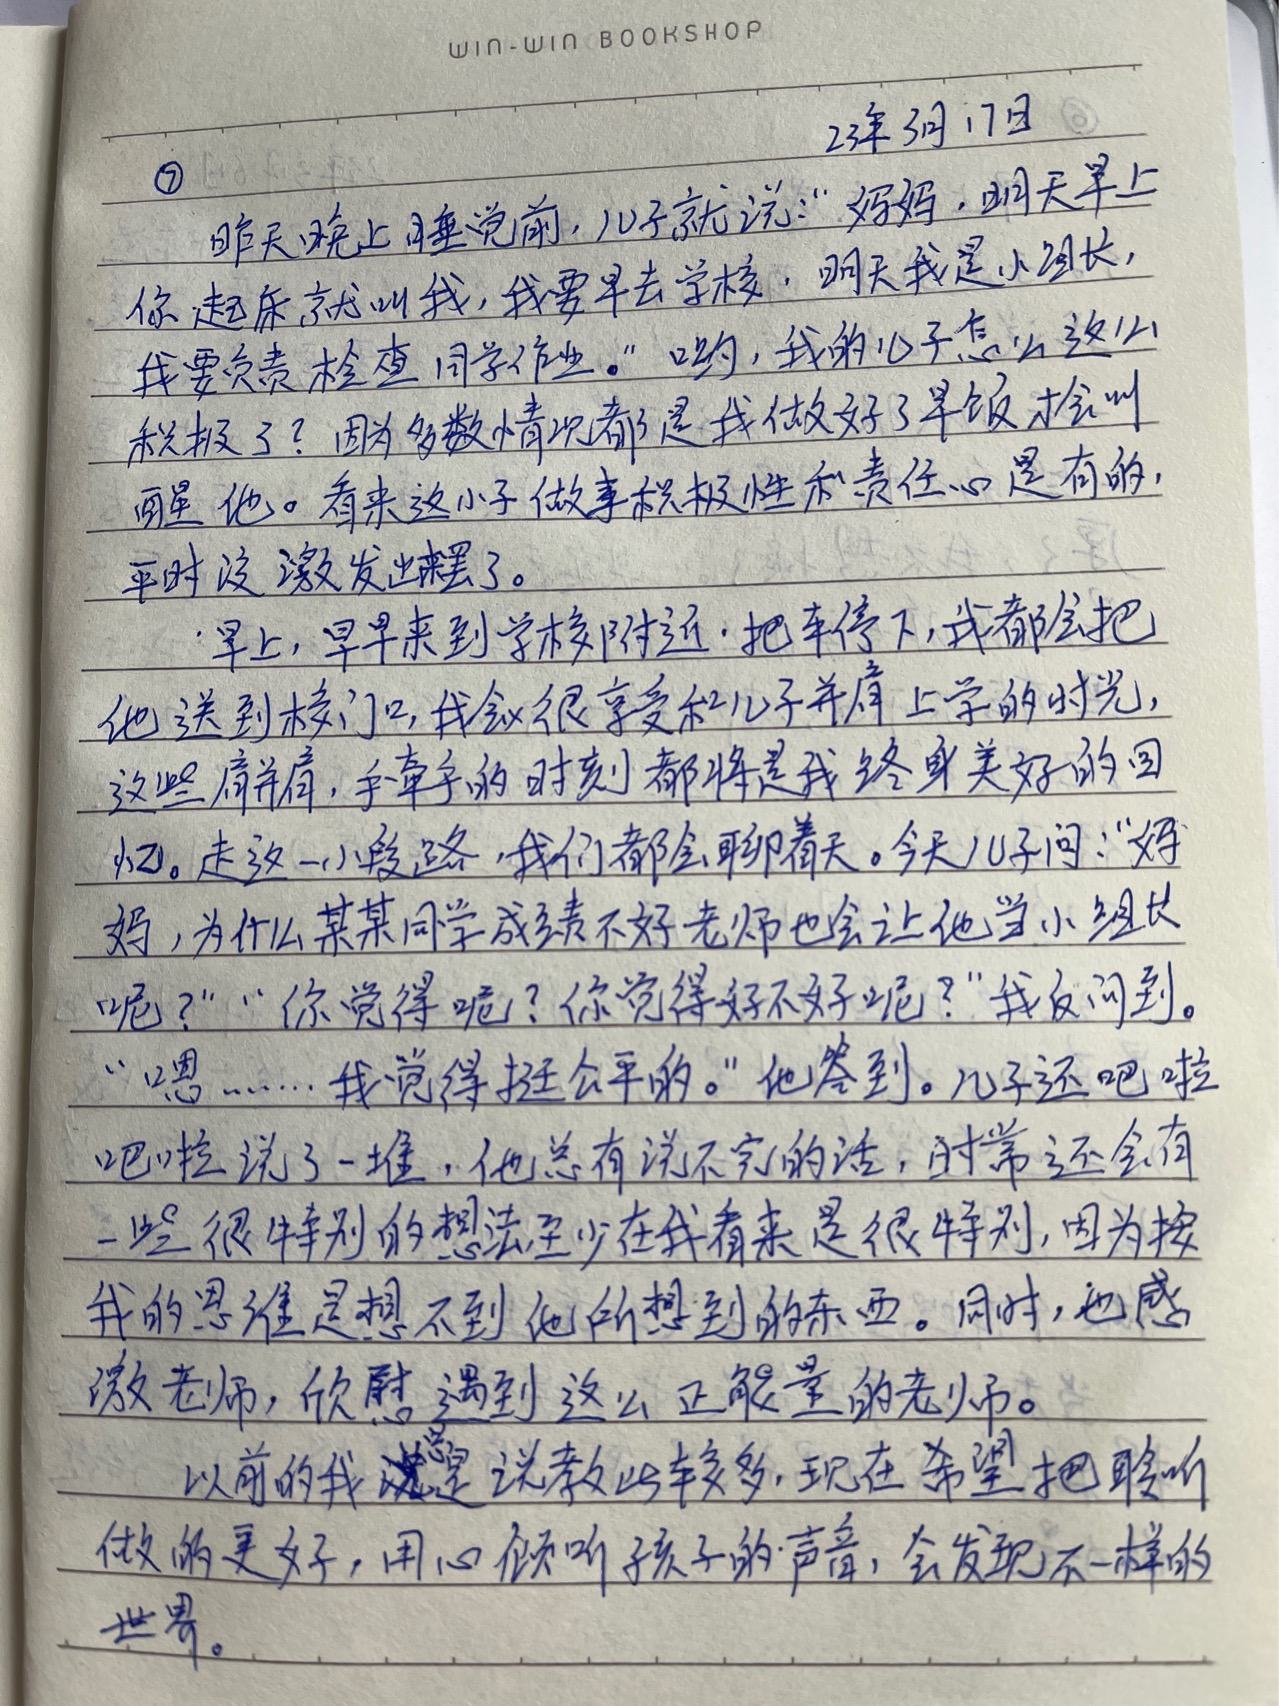 WIN-WIN BOOKSHOP
23年3月17日
⑦
昨天晚上睡觉前，儿子就说：“妈妈，明天早上
你起床就叫我，我要早去学校，明天我是小组长，
我要负责检查同学作业。”哟，我的儿子怎么这么
积极了？因为多数情况都是我做好了早饭才会叫
醒他。看来这小子做事积极性和责任心是有的，
平时没激发出来罢了。
早上，早早来到学校附近，把车停下，我都会把
他送到校门口，我会很享受和儿子并肩上学的时光，
这些肩并肩，手牵手的时刻都将是我终身美好的回
忆。走这一小段路，我们都会聊着天。今天儿子问：“妈
妈，为什么某某同学成绩不好老师也会让他当小组长
呢？”“你觉得呢？你觉得好不好呢？”我反问到。
“嗯……我觉得挺公平的。”他答到。儿子还吧啦
吧啦说了一堆，他总有说不完的话，时常还会有
一些很特别的想法至少在我看来是很特别，因为按
我的思维是想不到他所想到的东西。同时，也感
激老师，欣慰遇到这么正能量的老师。
以前的我总是说教比较多，现在希望把聆听
做的更好，用心倾听孩子的声音，会发现不一样的
世界。